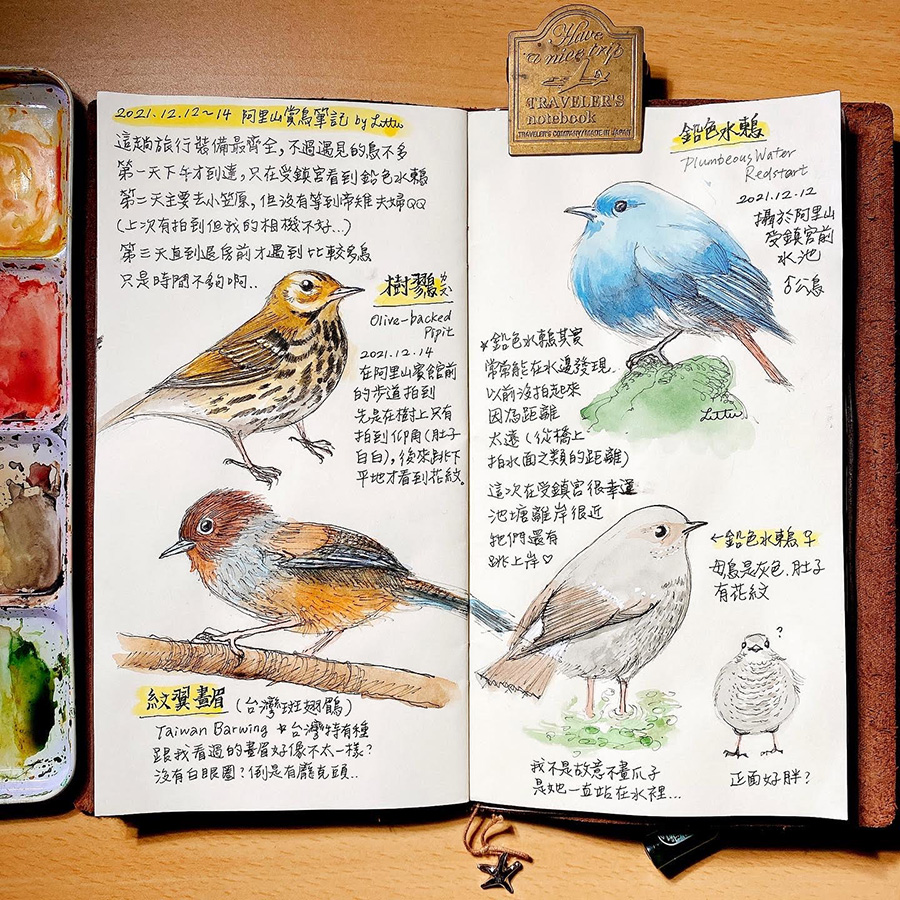 2021.12.12~14 阿里山賞鳥筆記 by Littu
這趟旅行裝備最齊全，不過遇見的鳥不多
第一天下午才到達，只在受鎮宮看到鉛色水鶇
第二天主要去小笠原，但沒有等到帝雉夫婦QQ
(上次有拍到但我的相機不好...)
第三天直到退房前才遇到比較多鳥
只是時間不夠啊..
樹鷚ㄌㄧㄡˋ
Olive-backed
Pipit
2021.12.14
在阿里山賓館前
的步道拍到
先是在樹上只有
拍到仰角(肚子
白白)，後來跳下
平地才看到花紋。
紋翼畫眉 (台灣斑翅鶥)
Taiwan Barwing 台灣特有種
跟我看過的畫眉好像不太一樣?
沒有白眼圈? 倒是有龐克頭..
Have
a nice trip
TRAVELER'S
notebook
TRAVELER'S COMPANY MADE IN JAPAN
鉛色水鶇
Plumbeous Water
Redstart
2021.12.12
攝於阿里山
受鎮宮前
水池
♂公鳥
Littu
*鉛色水鶇其實
常常能在水邊發現..
以前沒拍起來
因為距離
太遠(從橋上
拍水面之類的距離)
這次在受鎮宮很幸運
池塘離岸很近
牠們還有
跳上岸♡
←鉛色水鶇♀
母鳥是灰色.肚子
有花紋
?
我不是故意不畫爪子
是她一直站在水裡...
正面好胖?